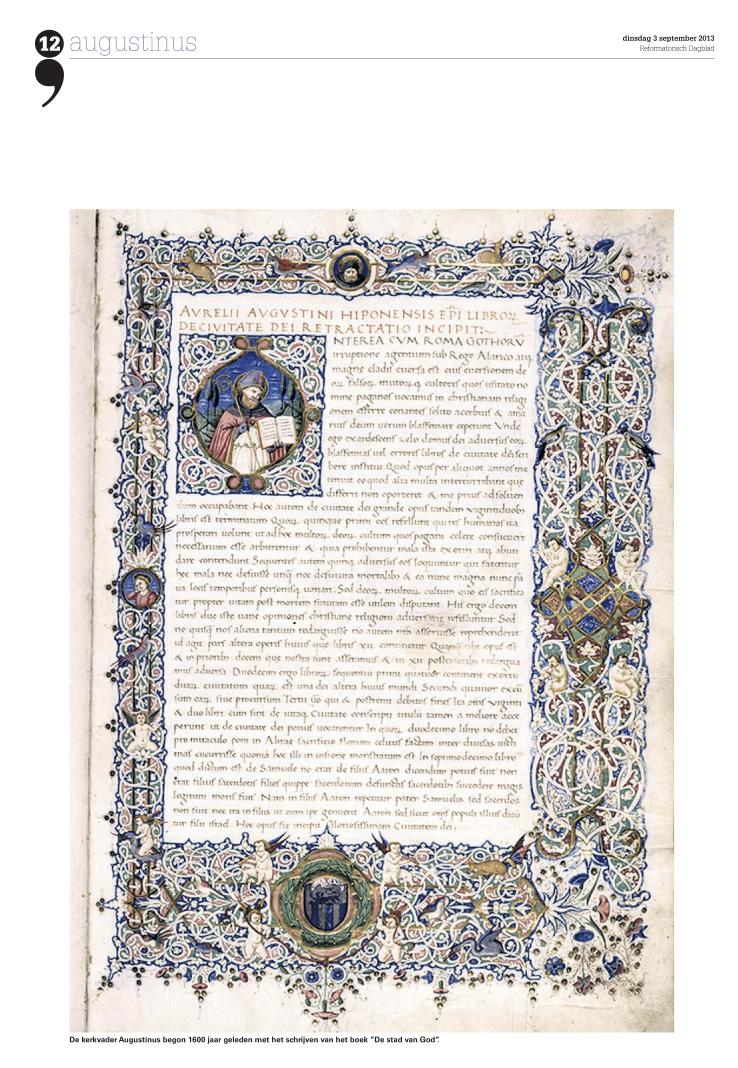 12 augustinus
dinsdag 3 september 2013
Reformatorisch Dagblad
AVRELII AVGVSTINI HIPONENSIS EPI LIBROR
DE CIVITATE DEI RETRACTATIO INCIPIT:
NTEREA CVM ROMA GOTHORV
irruptione agentium sub Rege Alarico atq
magne cladis euersa est eius euersionem de
falsor multorq cultores quos usitato no
mine paganos uocamus in christianam religi
onem efferre conantes solito acerbius & ama
rius deum uerum blasfemare ceperunt Vnde
ego exardescens zelo domus dei aduersus eor
blasfemias uel errores libros de ciuitate dei scri
bere institui Quod opus per aliquot annos me
tenuit eo quod alia multa intercurrebant que
differri non oporteret & me prius ad soluen
dum occupabant Hoc autem de ciuitate dei grande opus tandem viginti duob
libris est terminatum Quor quinque primi eos refellunt qui res humanas ita
prosperari uolunt ut ad hoc multor deor cultum quo pagani colere consueuerunt
necessarium esse arbitrentur & quia prohibentur mala ista exoriri atq abun
dare contendunt Sequentes autem quinq aduersus eos loquuntur qui fatentur
hec mala nec defuisse unq nec defutura mortalib & ea nunc magna nunc pa
ua locis temporibus personisq uariari Sed deor multor cultum quo eis sacrifica
tur propter uitam post mortem futuram esse utilem disputant His ergo decem
libris due iste uane opiniones christiane religioni aduersarie refelluntur Sed
ne quisq nos aliena tantum redarguisse no autem nra asseruisse reprehenderet
id agit pars altera operis huius que libris xii continetur Quanq ubi opus est
& in priorib decem que nostra sunt asseramus & in xii posteriorib redargua
mus aduersa Duodecim ergo libror sequentiu primi quatuor continent exortu
duar ciuitatum quar est una dei altera huius mundi Secundi quatuor excu
sum ear siue procursum Tertii & postremi debitos fines Ita oms viginti
& duo libri cum sint de utraq Ciuitate conscripti titulu tamen a meliore acce
perunt ut de ciuitate dei potius uocarentur In quor duodecimo libro no debet
pro miraculo poni in Abrae sacrificio flamam celitus factam inter diuisas uicti
mas cucurrisse quonia hoc illi in uisione monstratum est In septimo decimo libro
quod dictum est de Samuele no erat de filiis Aaron dicendum potius fuit non
erat filius sacerdotis filios quippe sacerdotum defunctis sacerdotib succedere magis
legitimi moris fuit Nam in filiis Aaron repetitur pater Samuelis sed sacerdos
non fuit nec ita in filiis ut eum ipe genuerit Aaron sed sicut oms populi illius dicu
tur filii israel. Hoc opus sic incipit Gloriosissimam Ciuitatem dei.
De kerkvader Augustinus begon 1600 jaar geleden met het schrijven van het boek “De stad van God”.